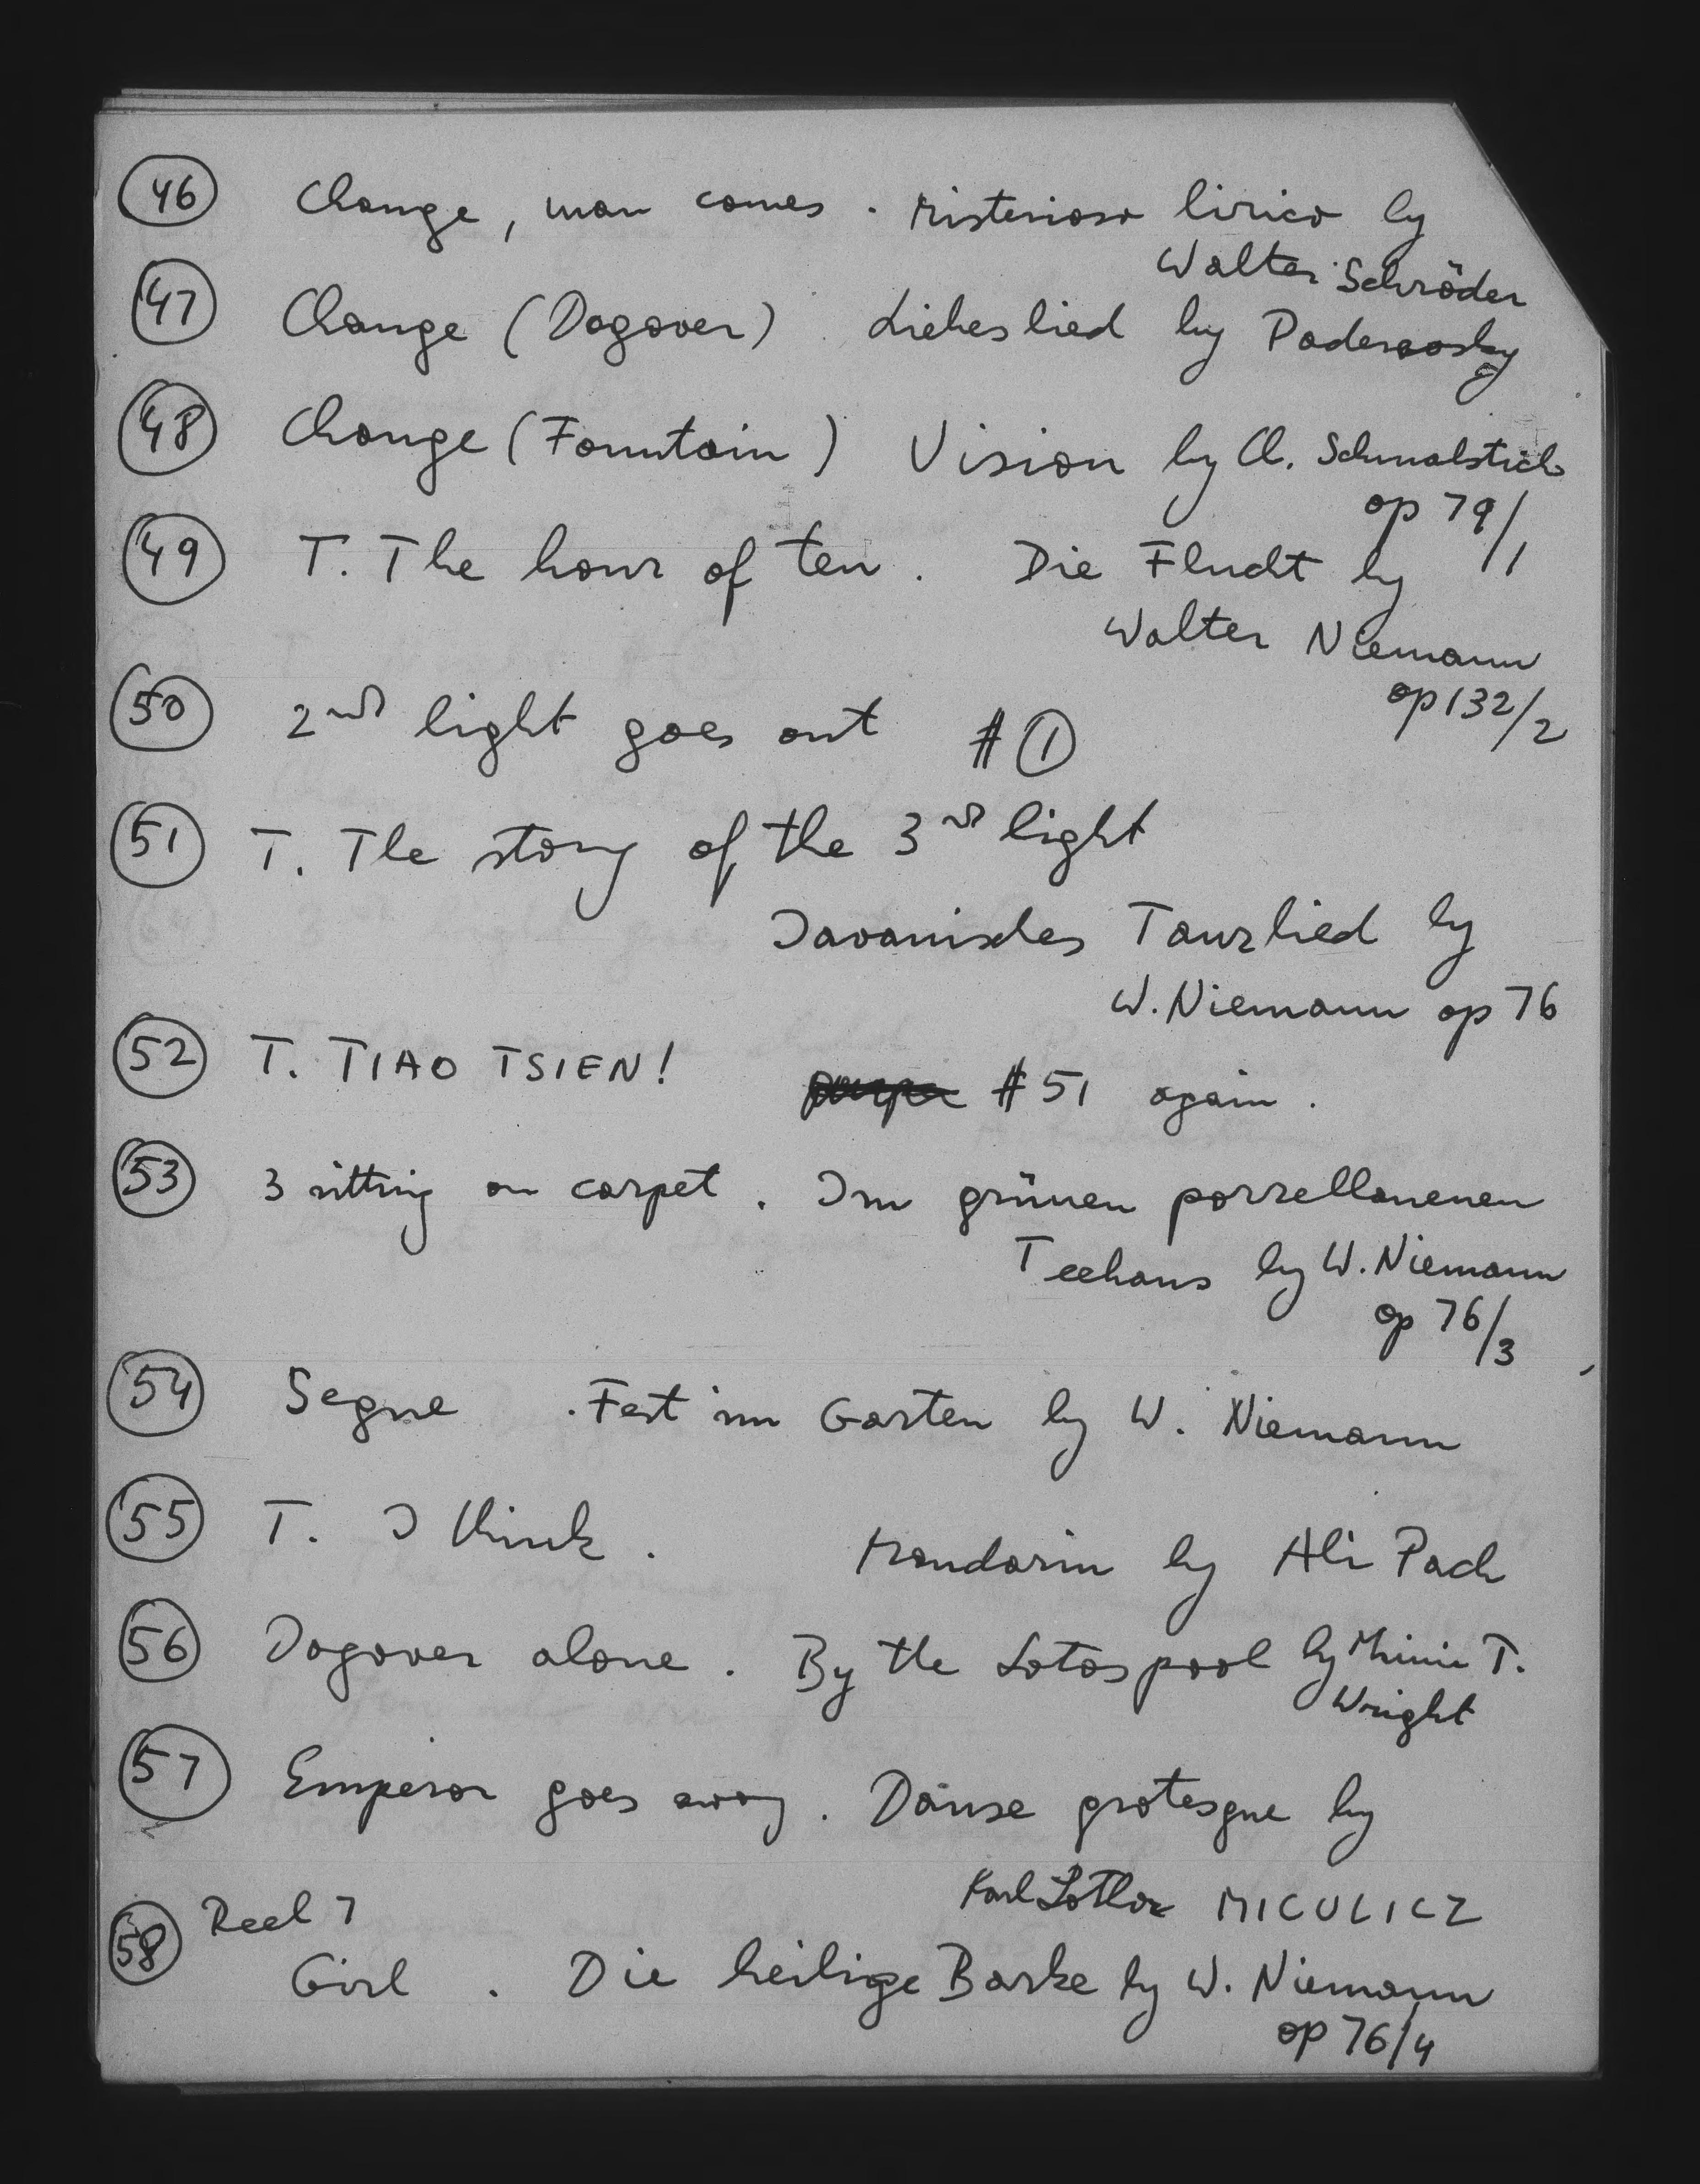 46 Change, man comes. Misterioso lirico by
Walter Schröder
47 Change (Dagover) Liebeslied by Paderewsky
48 Change (Fountain) Vision by Cl. Schmalstich
op 79/1
49 T. The hour of ten. Die Flucht by
Walter Niemann
op 132/2
50 2nd light goes out #①
51 T. The story of the 3rd light
Javanisches Tanzlied by
W. Niemann op 76
52 T. TIAO TSIEN! #51 again.
53 3 sitting on carpet. Im grünen porzellanenen
Teehaus by W. Niemann
op 76/3
54 Segue. Fest im Garten by W. Niemann
55 T. I think. Mandarin by Ali Pach
56 Dagover alone. By the Lotospool by Minnie T.
Wright
57 Emperor goes away. Danse grotesque by
Karl MICULICZ
58 Reel 7
Girl. Die heilige Barke by W. Niemann
op 76/4